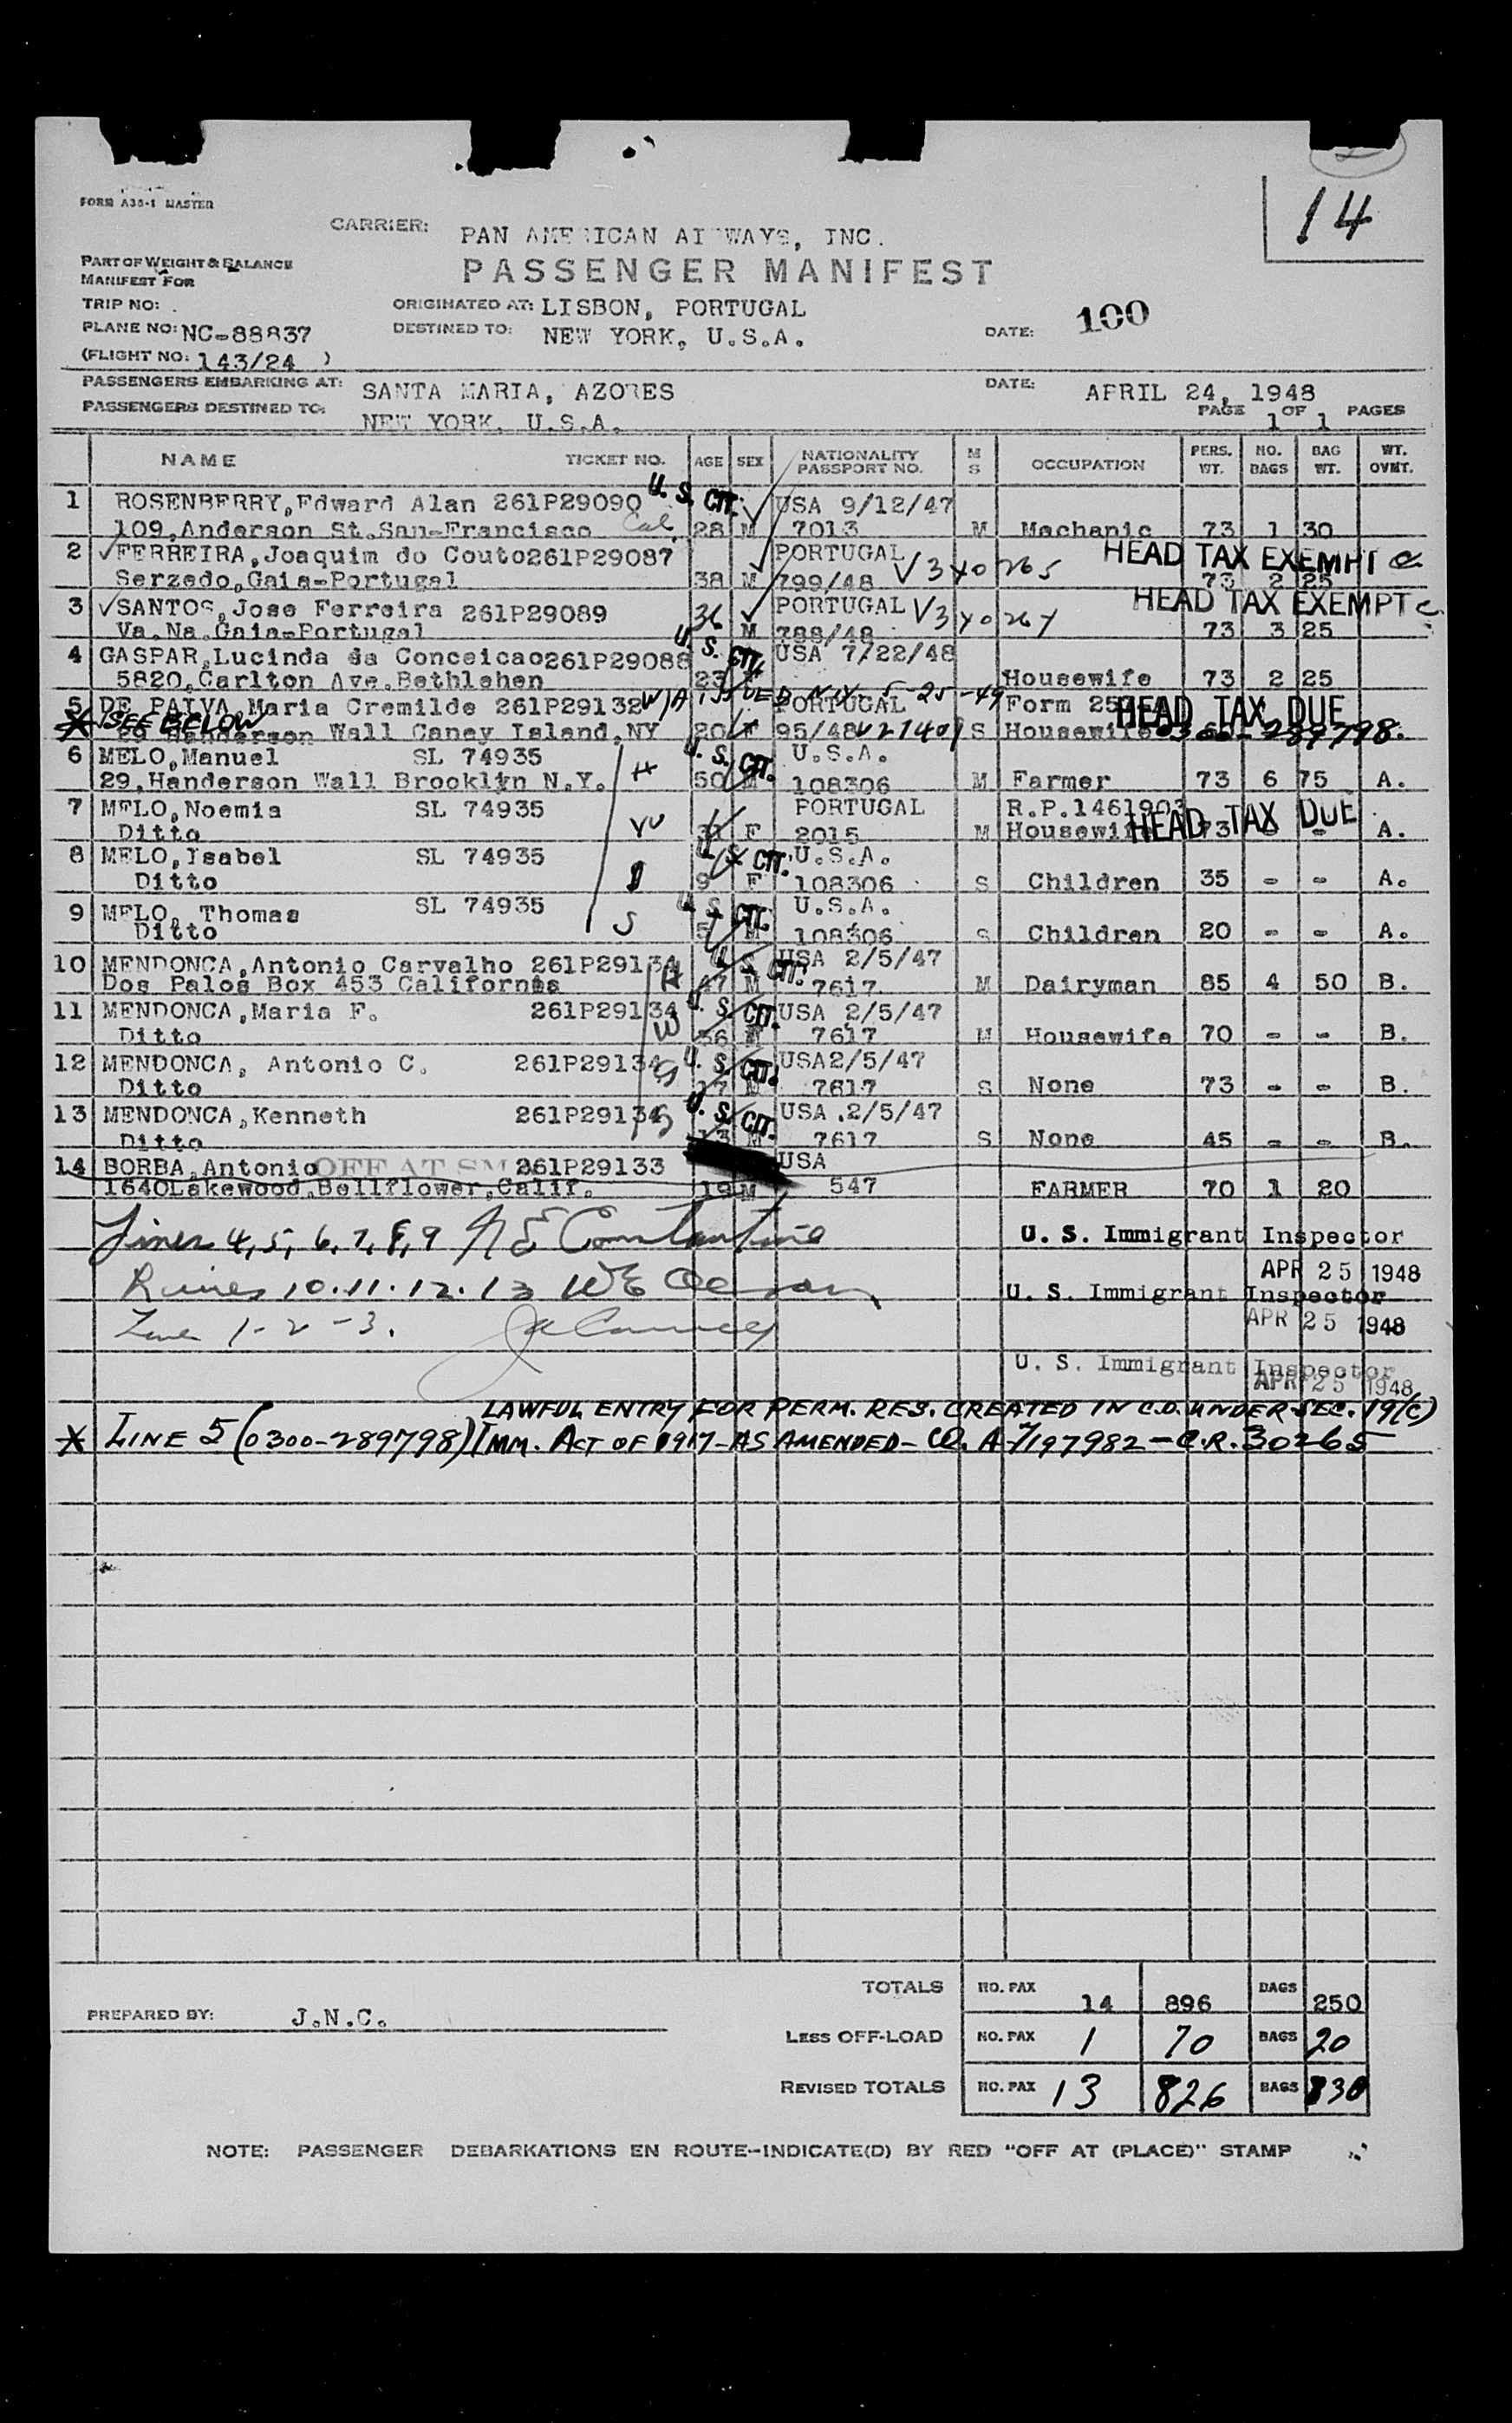 14
FORM A36-1 MASTER
CARRIER: PAN AMERICAN AIRWAYS, INC.
PART OF WEIGHT & BALANCE
MANIFEST FOR
PASSENGER MANIFEST
TRIP NO:
ORIGINATED AT: LISBON, PORTUGAL
PLANE NO: NC-88837
DESTINED TO: NEW YORK, U.S.A.
DATE: 100
(FLIGHT NO: 143/24 )
PASSENGERS EMBARKING AT: SANTA MARIA, AZORES
DATE: APRIL 24, 1948
PASSENGERS DESTINED TO: NEW YORK, U.S.A.
PAGE 1 OF 1 PAGES
NAME TICKET NO. AGE SEX NATIONALITY PASSPORT NO. M S OCCUPATION PERS. WT. NO. BAGS BAG WT. WT. OVMT.
1 ROSENBERRY,Edward Alan 261P29090 U. S. CIT. USA 9/12/47
109,Anderson St.San-Francisco Cal. 28 M 7013 M Machanic 73 1 30
2 FERREIRA,Joaquim do Couto261P29087 PORTUGAL V340265 HEAD TAX EXEMPT
Serzedo,Gaia-Portugal 38 M 799/48 73 2 25
3 SANTOS,Jose Ferreira 261P29089 36 PORTUGAL V340264 HEAD TAX EXEMPT
Va.Na.Gaia-Portugal M 788/48 73 3 25
4 GASPAR,Lucinda da Conceicao261P29088 U. S. CIT. USA 7/22/48
5820,Carlton Ave.Bethlehen 23 F Housewife 73 2 25
5 DE PAIVA,Maria Cremilde 261P29132 W/A ISSUED N.Y. 5-25-49 PORTUGAL Form 25 HEAD TAX DUE
* SEE BELOW 29 Henderson Wall Caney Island,NY 20 F 95/48 V271409 S Housewife 0300-289798.
6 MELO,Manuel SL 74935 U. S. CIT. U.S.A.
29,Handerson Wall Brooklyn N.Y. H 50 M 108306 M Farmer 73 6 75 A.
7 MELO,Noemia SL 74935 PORTUGAL R.P.1461903 HEAD TAX DUE
Ditto W 31 F 2015 M Housewife 73 - - A.
8 MELO,Isabel SL 74935 U. S. CIT. U.S.A.
Ditto D 9 F 108306 S Children 35 - - A.
9 MELO, Thomas SL 74935 U. S. CIT. U.S.A.
Ditto S 5 M 108306 S Children 20 - - A.
10 MENDONCA,Antonio Carvalho 261P29134 U. S. CIT. USA 2/5/47
Dos Palos Box 453 California H 47 M 7617 M Dairyman 85 4 50 B.
11 MENDONCA,Maria F. 261P29134 U. S. CIT. USA 2/5/47
Ditto W 36 F 7617 M Housewife 70 - - B.
12 MENDONCA, Antonio C. 261P29134 U. S. CIT. USA2/5/47
Ditto S 17 M 7617 S None 73 - - B.
13 MENDONCA,Kenneth 261P29134 U. S. CIT. USA.2/5/47
Ditto S 13 M 7617 S None 45 - - B.
14 BORBA,Antonio OFF AT SMA 261P29133 USA
1640Lakewood.Bellflower,Calif. 19 M 547 FARMER 70 1 20
Lines 4,5, 6,7,8,9 N E Constantine U. S. Immigrant Inspector
APR 25 1948
Lines 10.11.12.13 U. S. Immigrant Inspector
APR 25 1948
Line 1-2-3.
U. S. Immigrant Inspector
APR 25 1948
LAWFUL ENTRY FOR PERM. RES. CREATED IN C.O. UNDER SEC. 19(C)
* LINE 5 (0300-289798) IMM. ACT OF 1917-AS AMENDED-CO. A-7197982-C.R. 30265
TOTALS NO. PAX 14 896 BAGS 250
PREPARED BY: J.N.C.
LESS OFF-LOAD NO. PAX 1 70 BAGS 20
REVISED TOTALS NO. PAX 13 826 BAGS 830
NOTE: PASSENGER DEBARKATIONS EN ROUTE-INDICATE(D) BY RED "OFF AT (PLACE)" STAMP